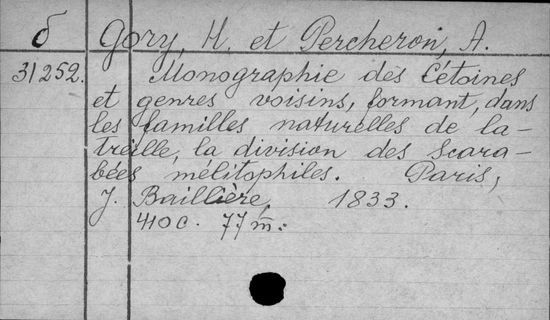 б Gory, H. et Percheron, A.
31252. Monographie des Cétoines
et genres voisins, formant, dans
les familles naturelles de la-
treille, la division des Scara-
bées mélitophiles. Paris,
J. Baillière, 1833.
410 c. 77 т.: